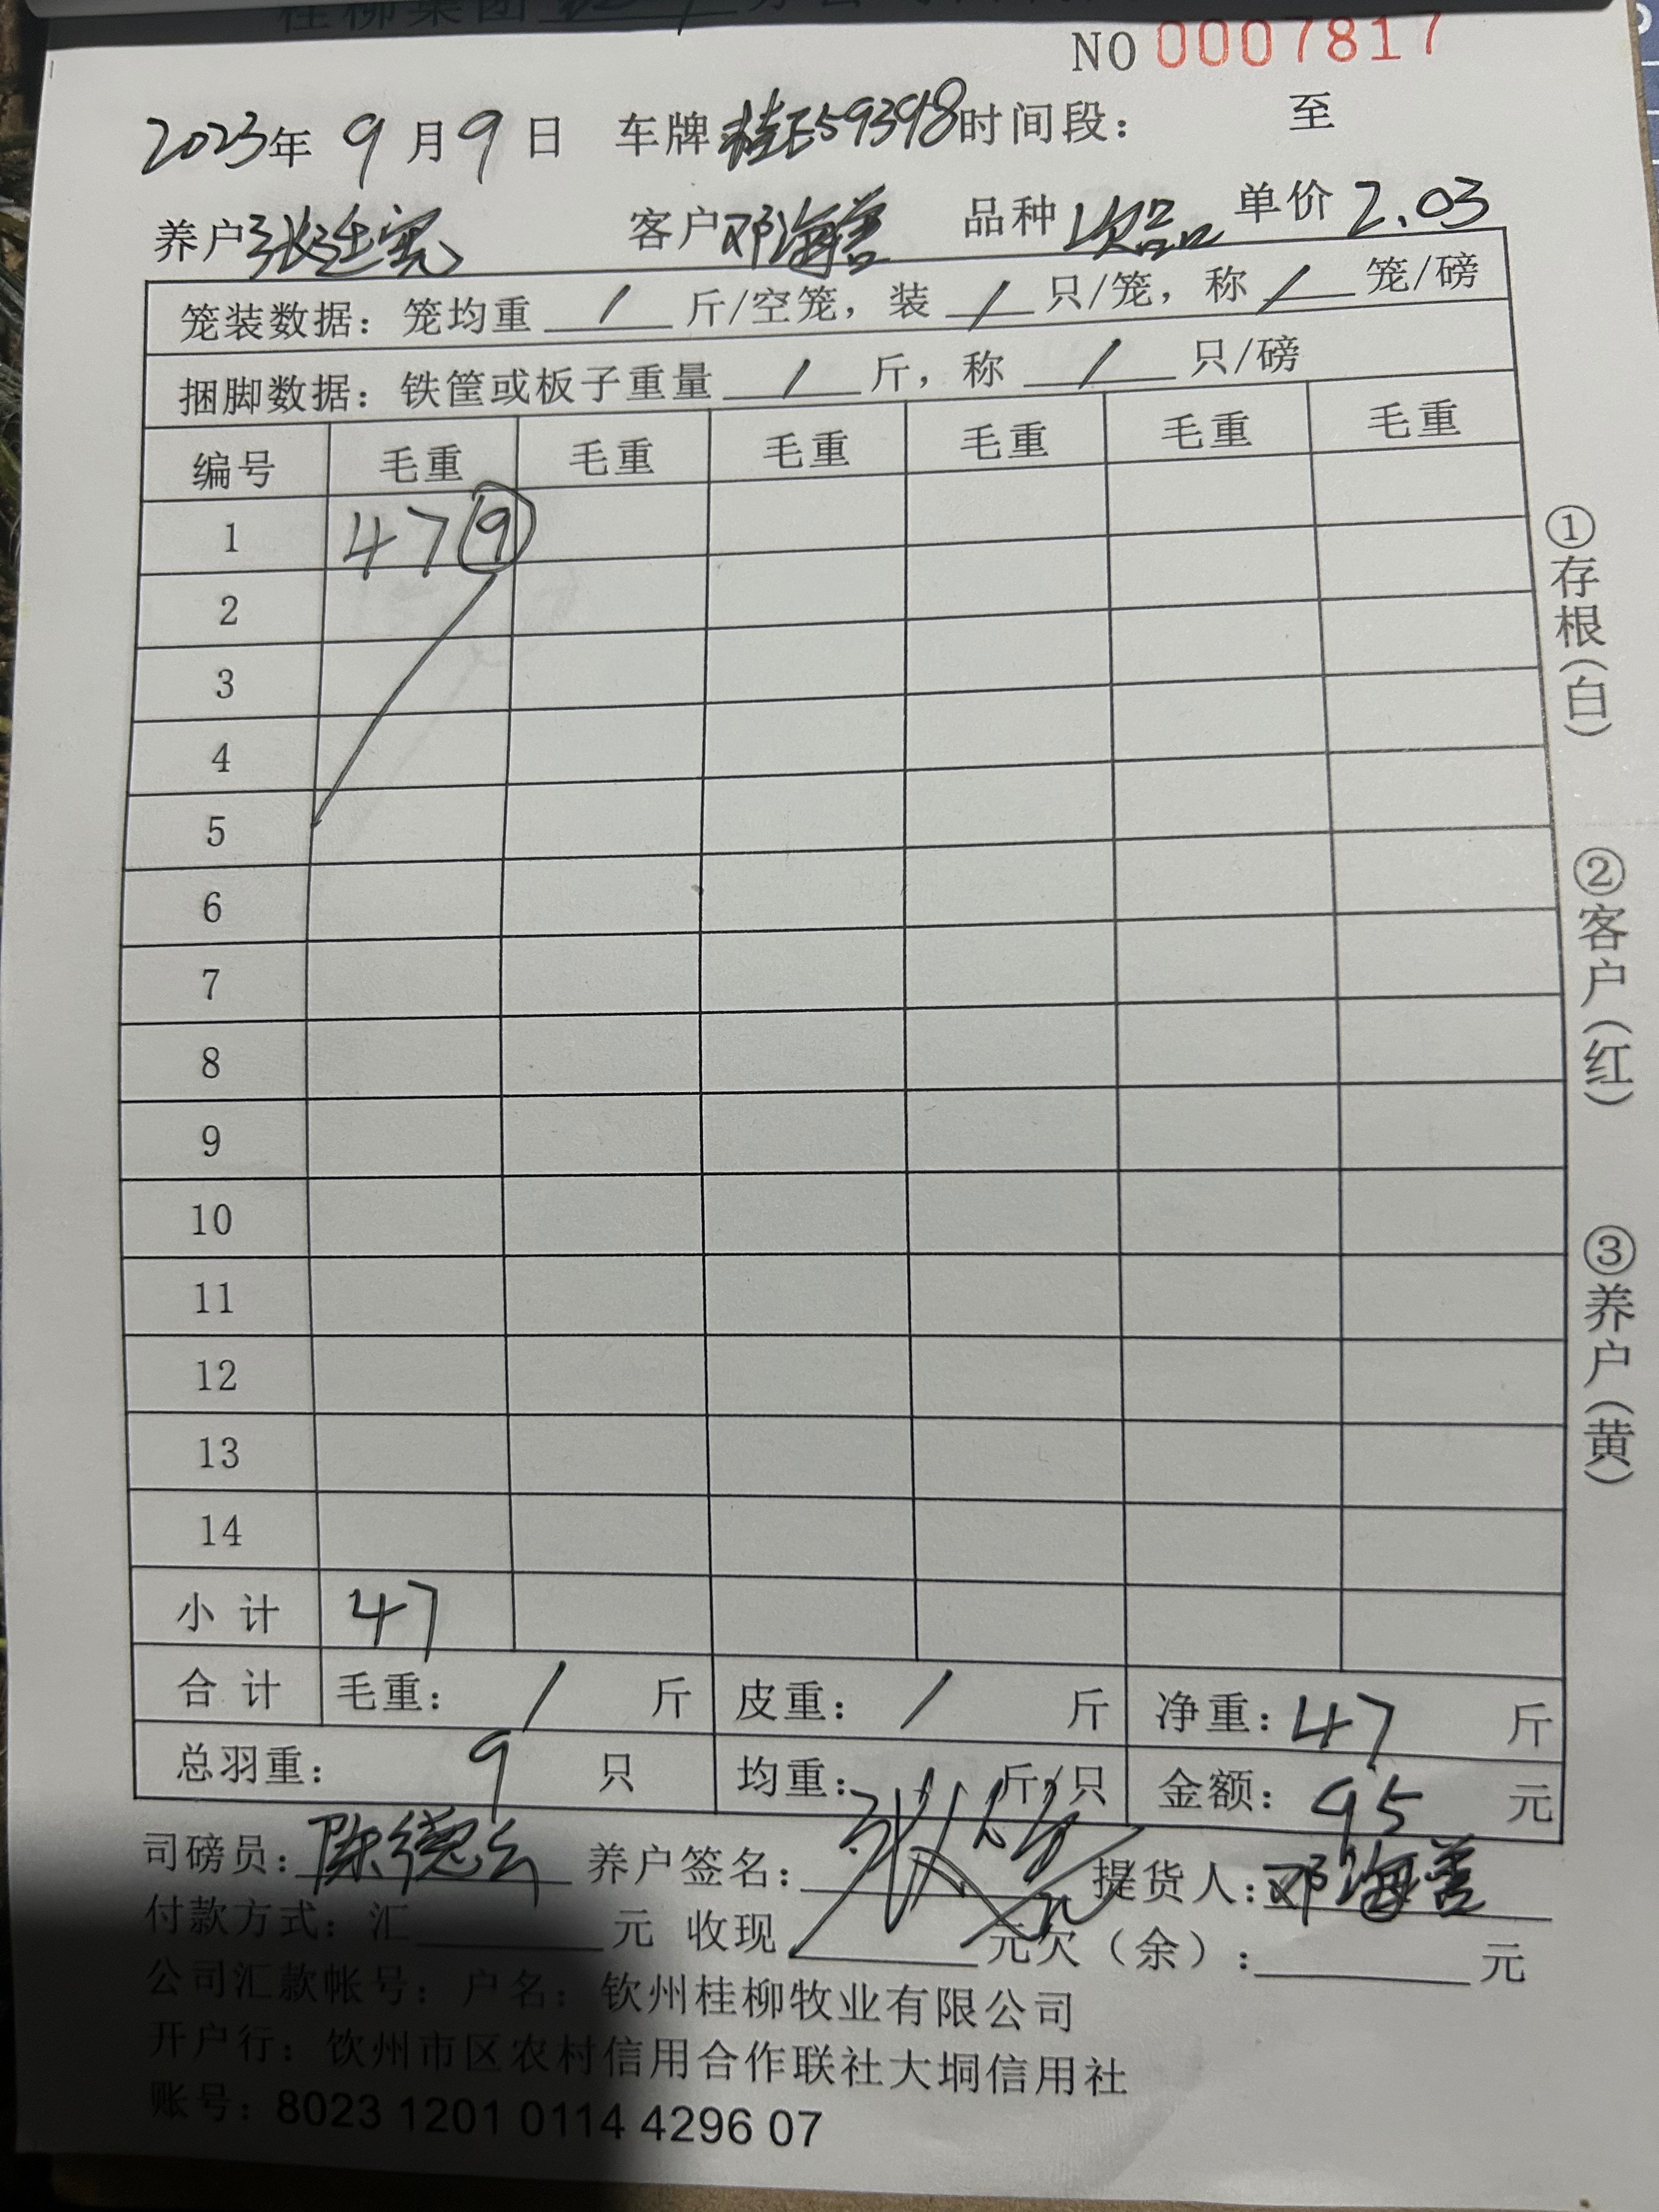 桂柳集团
NO 0007817
2023年 9 月 9 日 车牌 桂E59398 时间段： 至
养户 张廷宪 客户 邓海善 品种 次品 单价 2.03
笼装数据：笼均重 / 斤/空笼，装 / 只/笼，称 / 笼/磅
捆脚数据：铁筐或板子重量 / 斤，称 / 只/磅
编号 毛重 毛重 毛重 毛重 毛重 毛重
1 47 ⑨
2
3
4
5
6
7
8
9
10
11
12
13
14
小 计 47
合 计 毛重： / 斤 皮重： / 斤 净重：47 斤
总羽重： 9 只 均重： 斤/只 金额：95 元
司磅员：陈德 养户签名：张 提货人：邓海善
付款方式：汇 元 收现 元欠（余）： 元
公司汇款帐号：户名：钦州桂柳牧业有限公司
开户行：饮州市区农村信用合作联社大垌信用社
账号：8023 1201 0114 4296 07
①存根（白）
②客户（红）
③养户（黄）